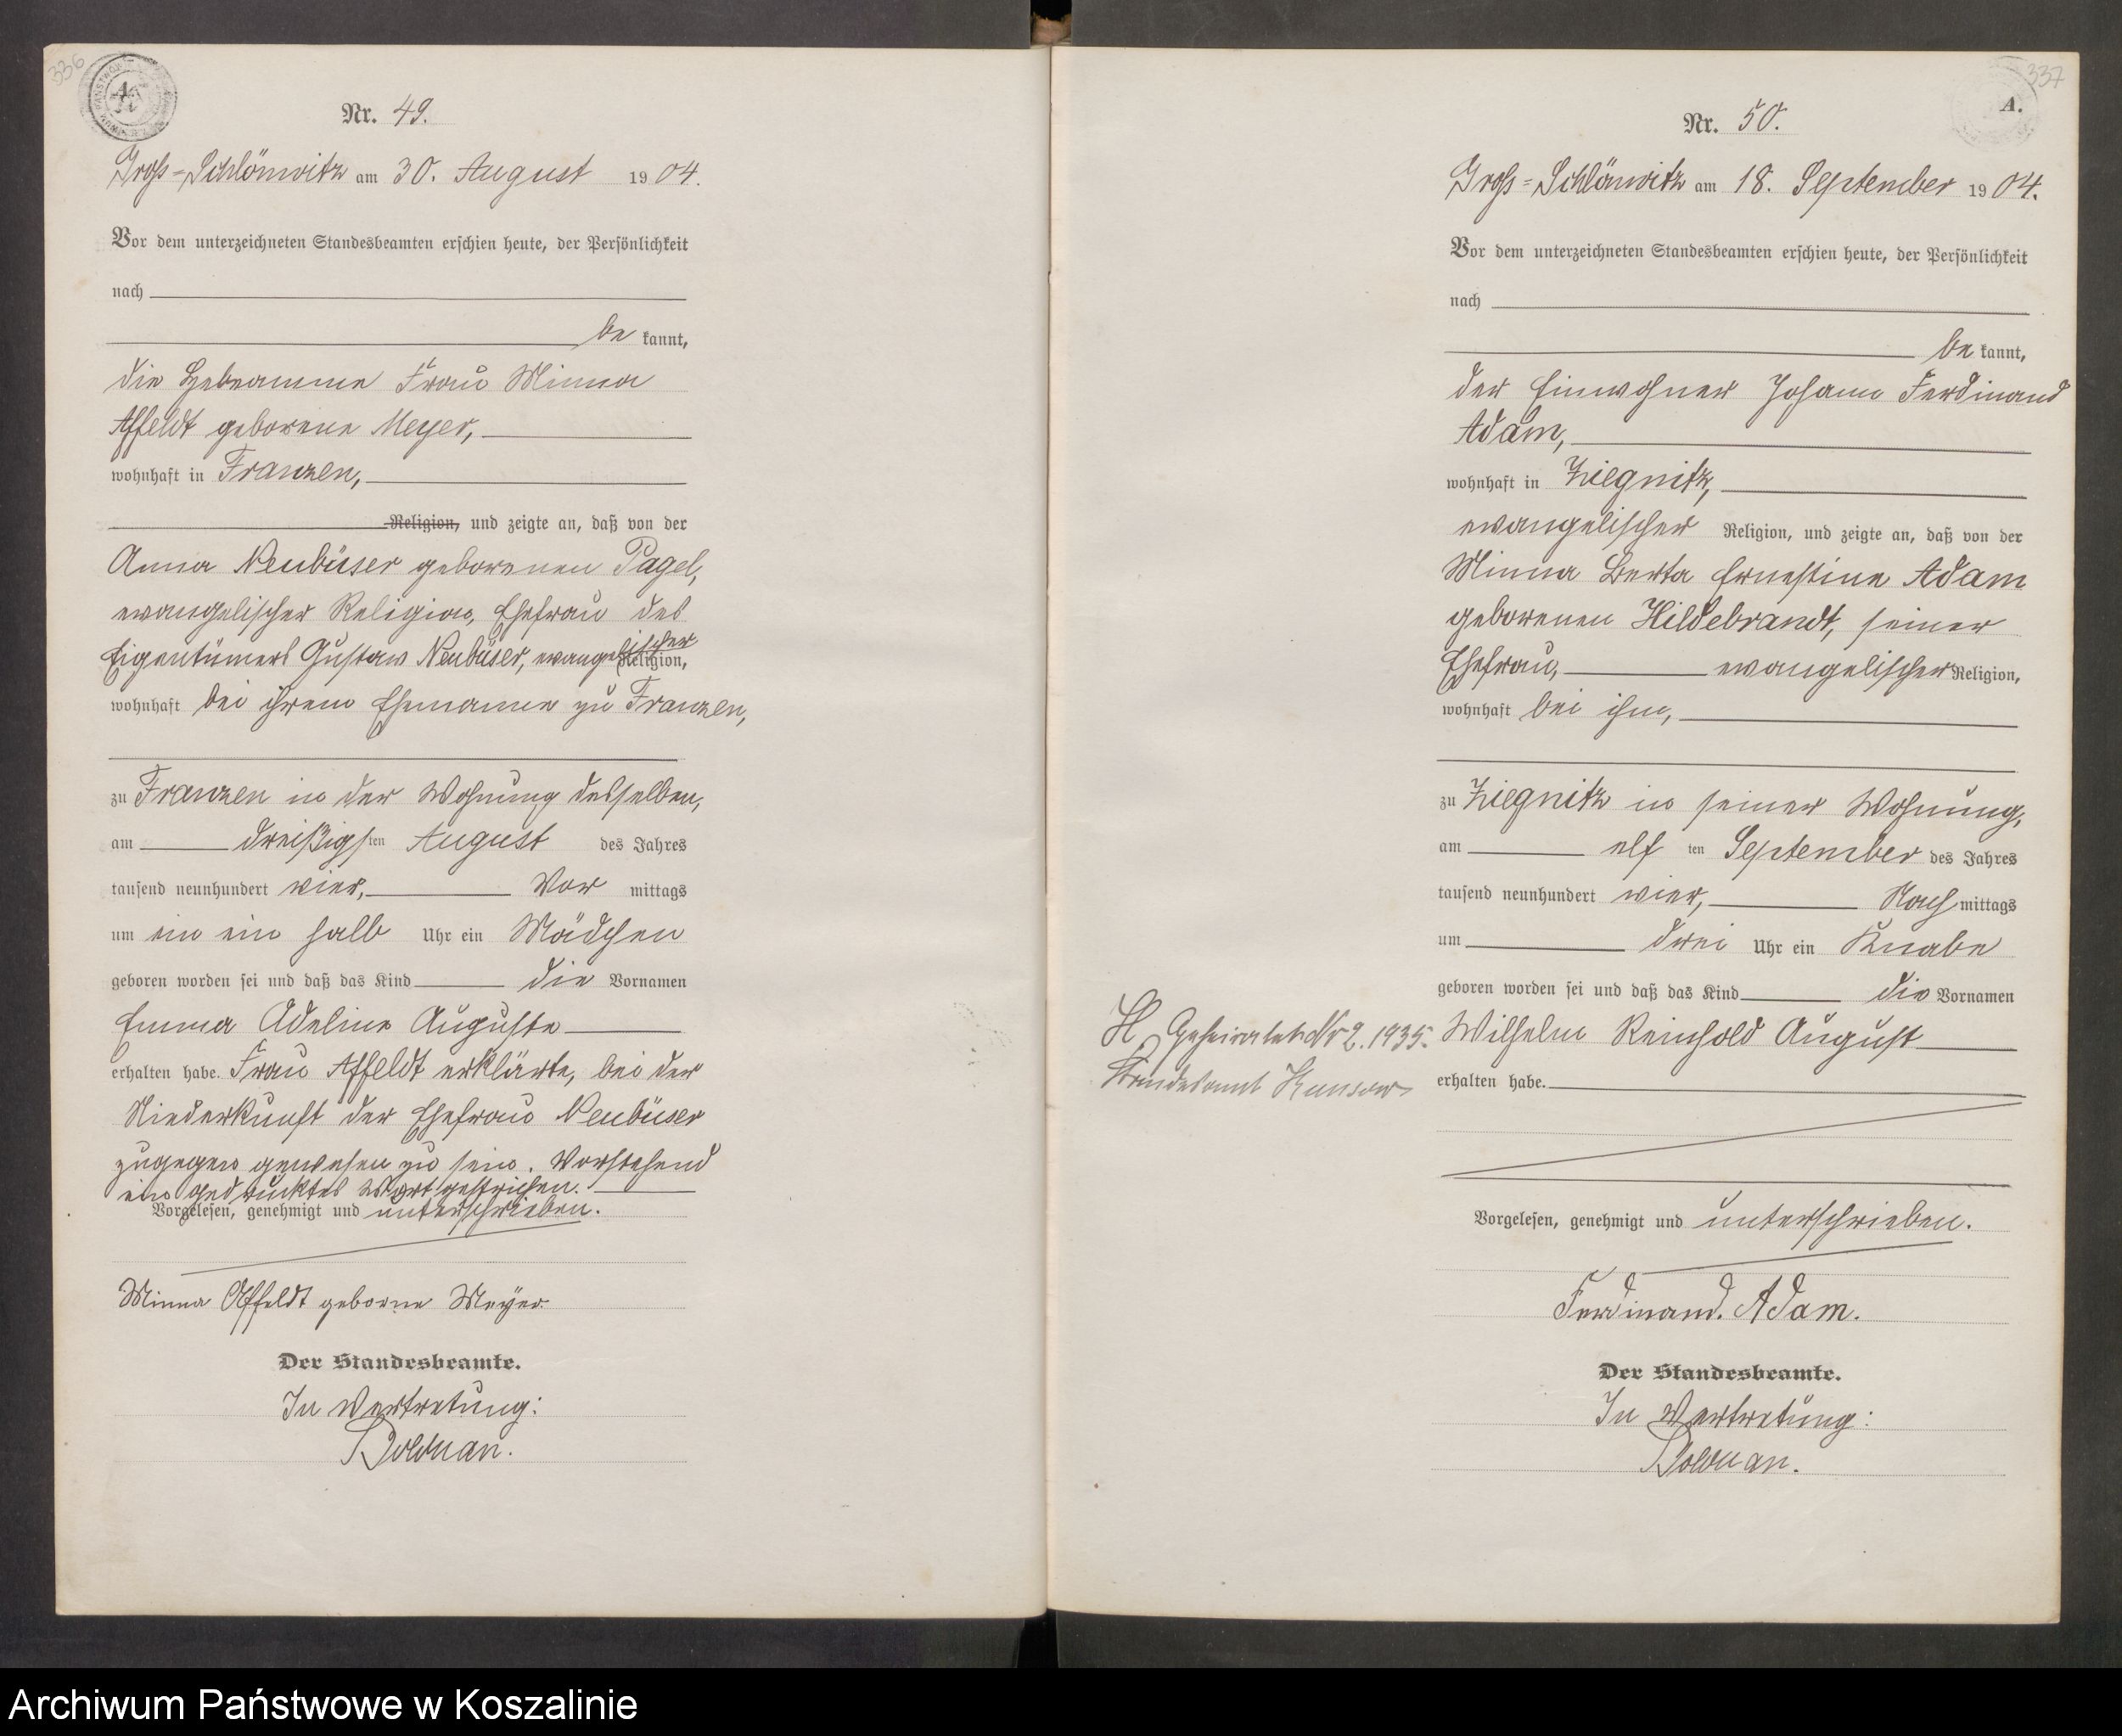 336
Nr. 49.
Groß-Schlönwitz am 30. August 1904.
Vor dem unterzeichneten Standesbeamten erschien heute, der Persönlichkeit
nach
bekannt,
die Hebeamme Frau Minna
Affeldt geborene Meyer,
wohnhaft in Franzen,
Religion, und zeigte an, daß von der
Anna Neubüser geborenen Pagel,
evangelischer Religion, Ehefrau des
Eigentümers Gustav Neubüser, evangelischer Religion,
wohnhaft bei ihrem Ehemanne zu Franzen,
zu Franzen in der Wohnung desselben,
am dreißigsten August des Jahres
tausend neunhundert vier, Vormittags
um ein ein halb Uhr ein Mädchen
geboren worden sei und daß das Kind die Vornamen
Emma Adeline Auguste
erhalten habe. Frau Affeldt erklärte, bei der
Niederkunft der Ehefrau Neubüser
zugegen gewesen zu sein. Vorstehend
ein gedrucktes Wort gestrichen.
Vorgelesen, genehmigt und unterschrieben.
Minna Affeldt geborne Meyer.
Der Standesbeamte.
In Vertretung:
Bolduan.
337
A.
Nr. 50.
Groß-Schlönwitz am 18. September 1904.
Vor dem unterzeichneten Standesbeamten erschien heute, der Persönlichkeit
nach
bekannt,
der Einwohner Johann Ferdinand
Adam,
wohnhaft in Ziegnitz,
evangelischer Religion, und zeigte an, daß von der
Minna Berta Ernestine Adam
geborenen Hildebrandt, seiner
Ehefrau, evangelischer Religion,
wohnhaft bei ihm,
zu Ziegnitz in seiner Wohnung,
am elften September des Jahres
tausend neunhundert vier, Nachmittags
um drei Uhr ein Knabe
geboren worden sei und daß das Kind die Vornamen
Wilhelm Reinhold August
erhalten habe.
H Geheiratet Nr 2. 1935.
Standesamt Kunsow
Vorgelesen, genehmigt und unterschrieben.
Ferdinand. Adam.
Der Standesbeamte.
In Vertretung:
Bolduan.
Archiwum Państwowe w Koszalinie